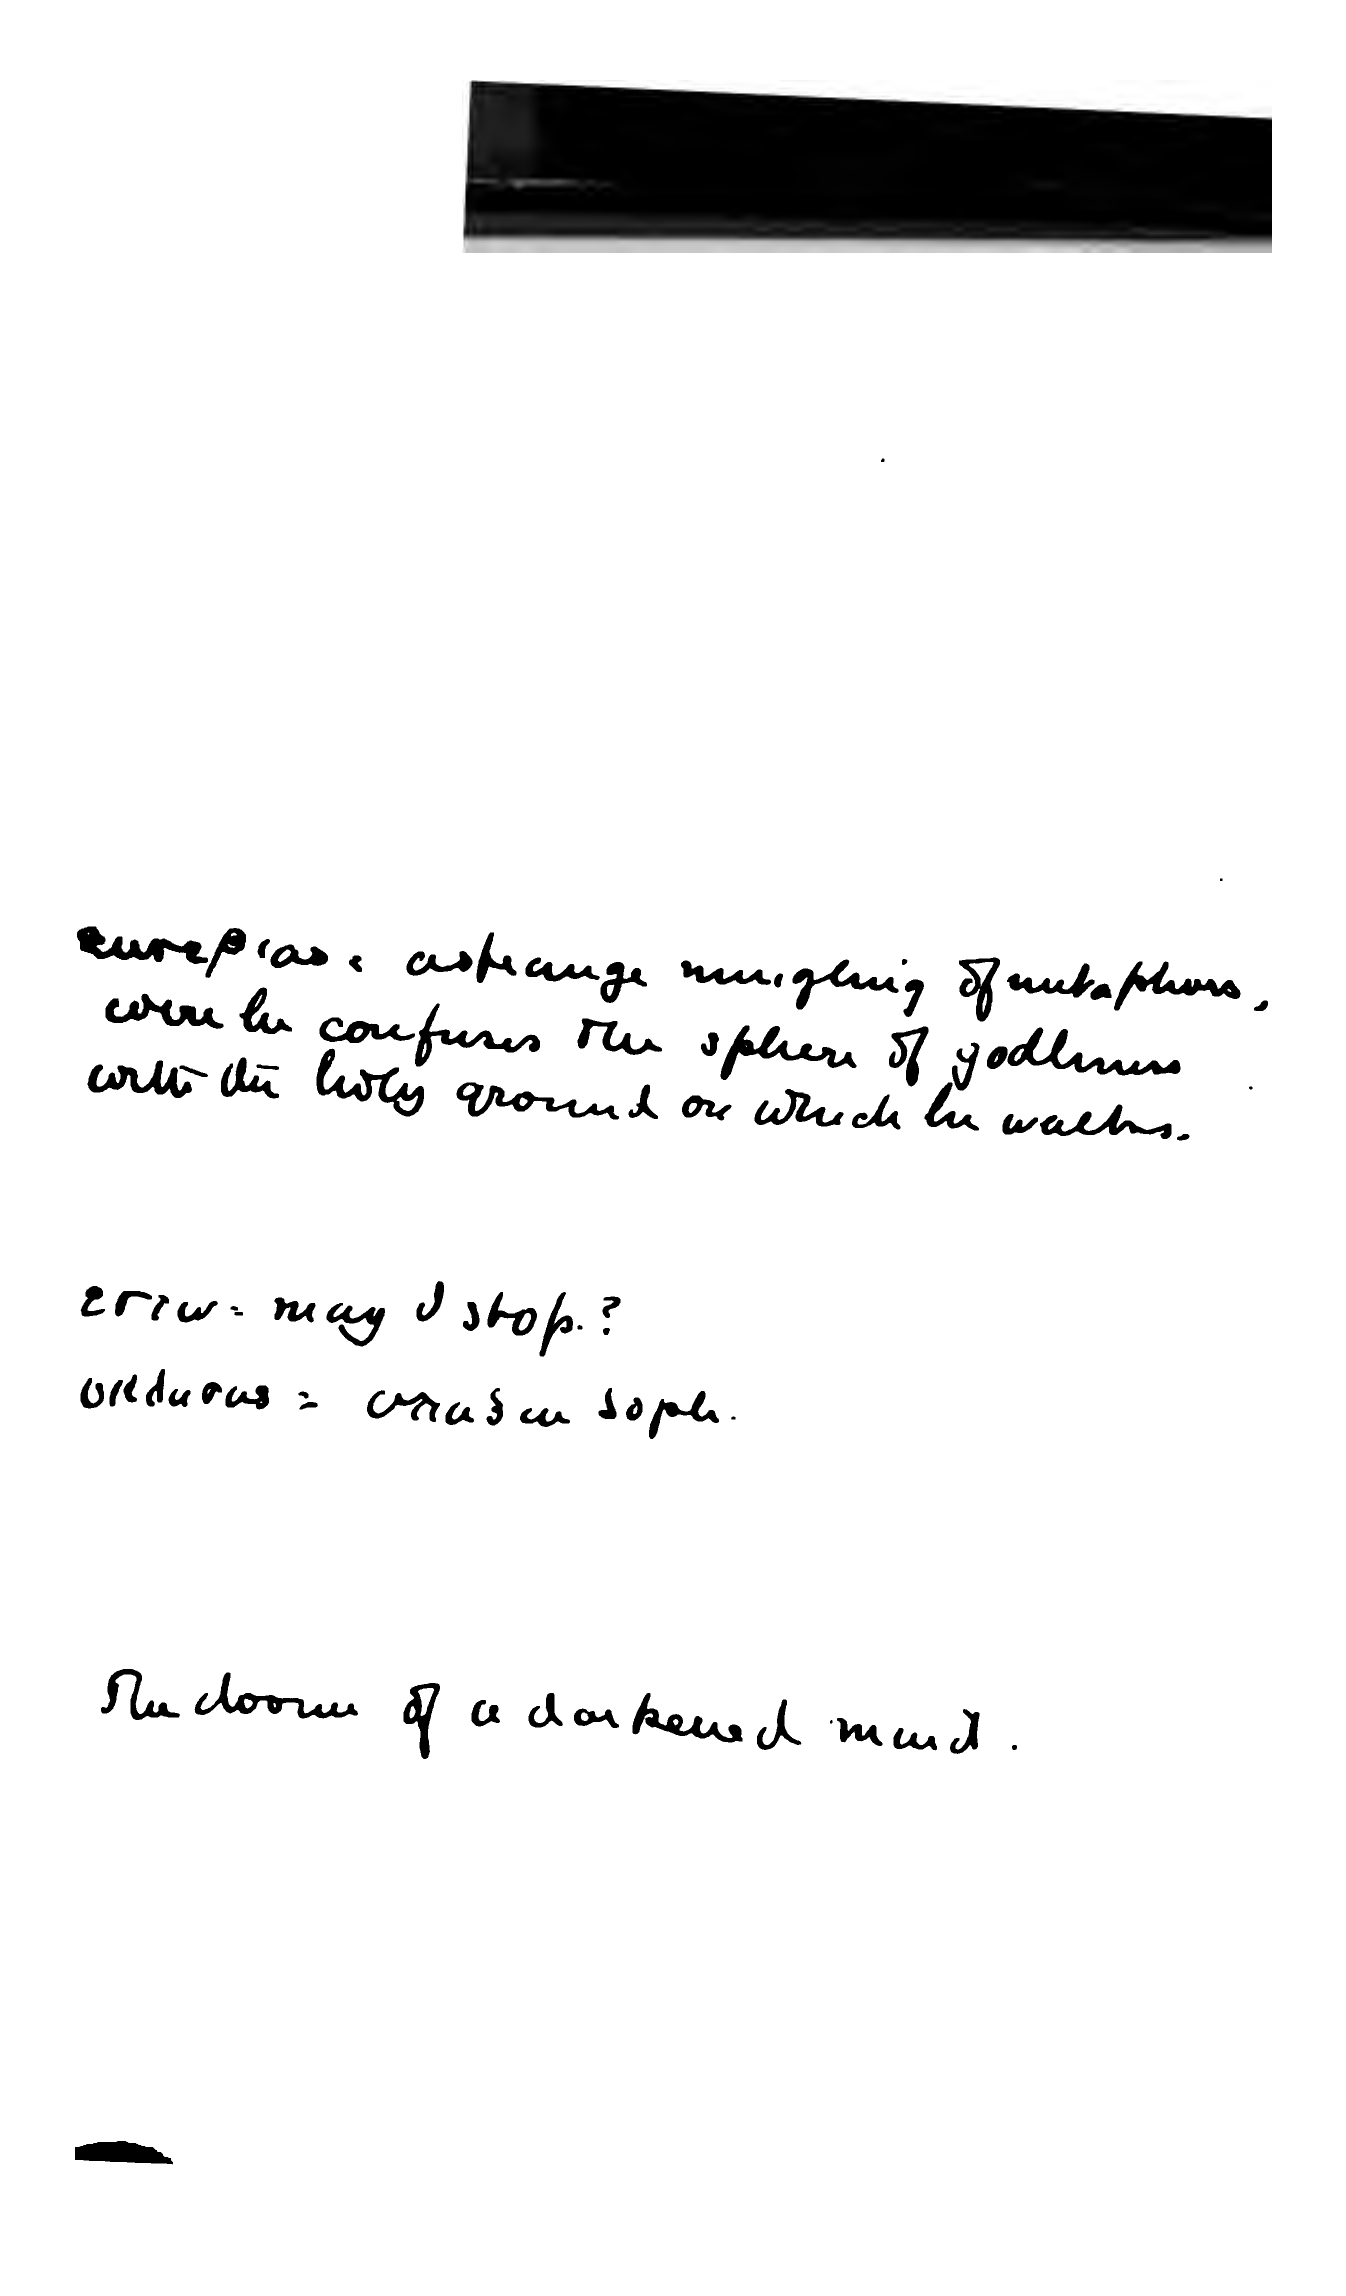 ευσεβίας : a strange mingling of metaphors,
were he confuses the sphere of godliness
with the holy ground on which he walks.
εστω = may I stop.?
οκλασας = απαξ in soph.
The doom of a darkened mind.